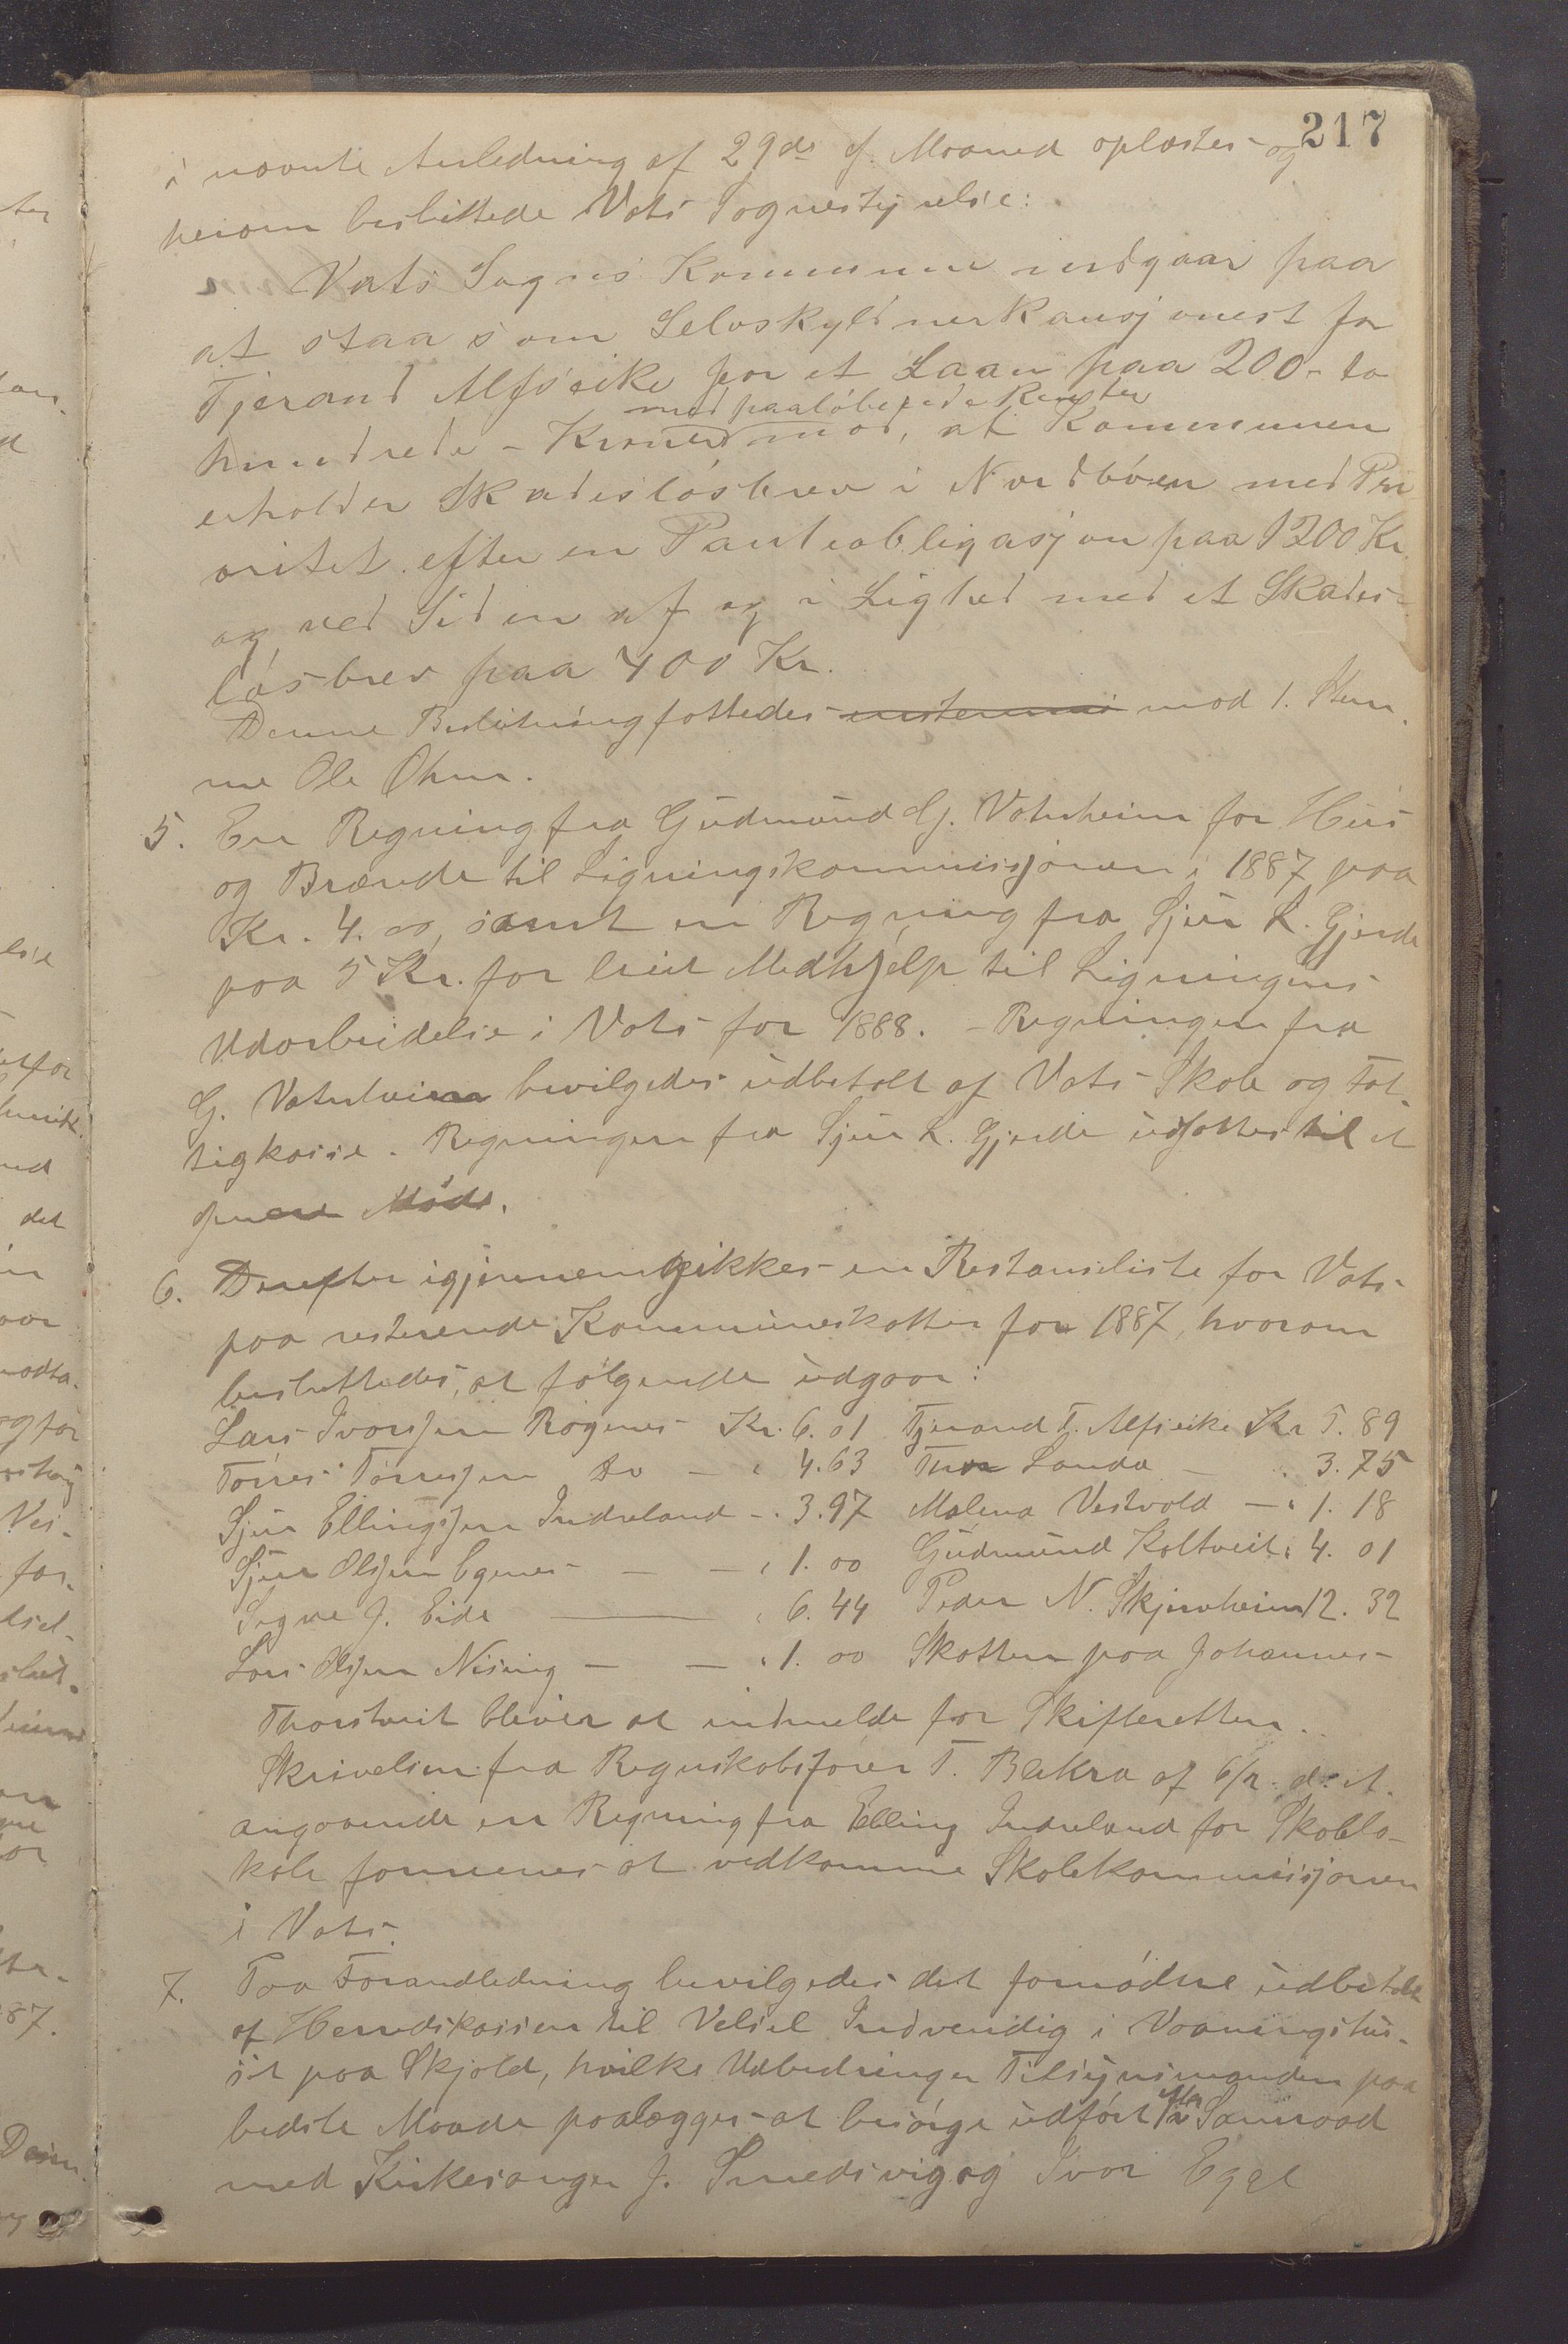 217
i nævnte Anledning af 29ds f. Maaned oplæstes og
herom besluttede Vats Sognestyrelse:
Vats Sogns Kommune indgaar paa
at staa som Selvskyldnerkausjonist for
Tjerand Alfseike for et Laan paa 200 - to
med paaløbende Renter
hundrede - Kroner mod, at Kommunen
erholder Skadesløsbrev i Nordbøen med Pri
oritet efter en Panteobligasjon paa 1200 Kr.
og ved Siden af og i Lighed med et Skades-
løsbrev paa 400 Kr.
Denne Beslutning fattedes enstemmi mod 1. Stem
me Ole Øhrn.
5. En Regning fra Gudmund G. Vatnheim for Hus
og Brænde til Ligningskommissjonen i 1887 paa
Kr. 4.00, samt en Regning fra Sjur L. Gjerde
paa 5 Kr. for leiet Medhjelp til Ligningens
Udarbeidelse i Vats for 1888. - Regningen fra
G. Vatnheim bevilgedes udbetalt af Vats Skole og Fat
tigkasse. Regningen fra Sjur L. Gjerde udsattes til et
senere Møde.
6. Derefter igjennemgikkes en Restanseliste for Vats
paa resterende Kommuneskatter for 1887, hvorom
besluttedes, at følgende udgaar:
Lars Ivarsjen Røgenes Kr. 6.01 Tjerand T. Alfseike Kr 5.89
Torres Torresjen Do - " 4.63 Thor Landa - " 3.75
Sjur Ellingsjen Indreland - " 3.97 Malena Vestvold - " 1.18
Sjur Olsjen Egenes - - " 1.00 Gudmund Koltveit " 4.01
Signe J. Eide - " 6.44 Peder N. Skjerheim 12.32
Lars Olsjen Nising - - " 1.00 Skatten paa Johannes
Thorstveit bliver at indmelde for Skifteretten.
Skrivelsen fra Regnskabsfører T. Bakra af 6/2 d. A.
angaaende en Regning fra Elling Indreland for Skolelo-
kale formenes at vedkomme Skolekommissjonen
i Vats.
7. Paa Forandledning bevilgedes det fornødne udbetalt
af Herredskassen til Indvendig i Vaaningshu-
set paa Skjold, hvilke Udbedringer Tilsynsmanden paa
bedste Maade paalægges at besørge udført i Samraad
med Kirkesanger J. Smedsvig og Ivar Egge